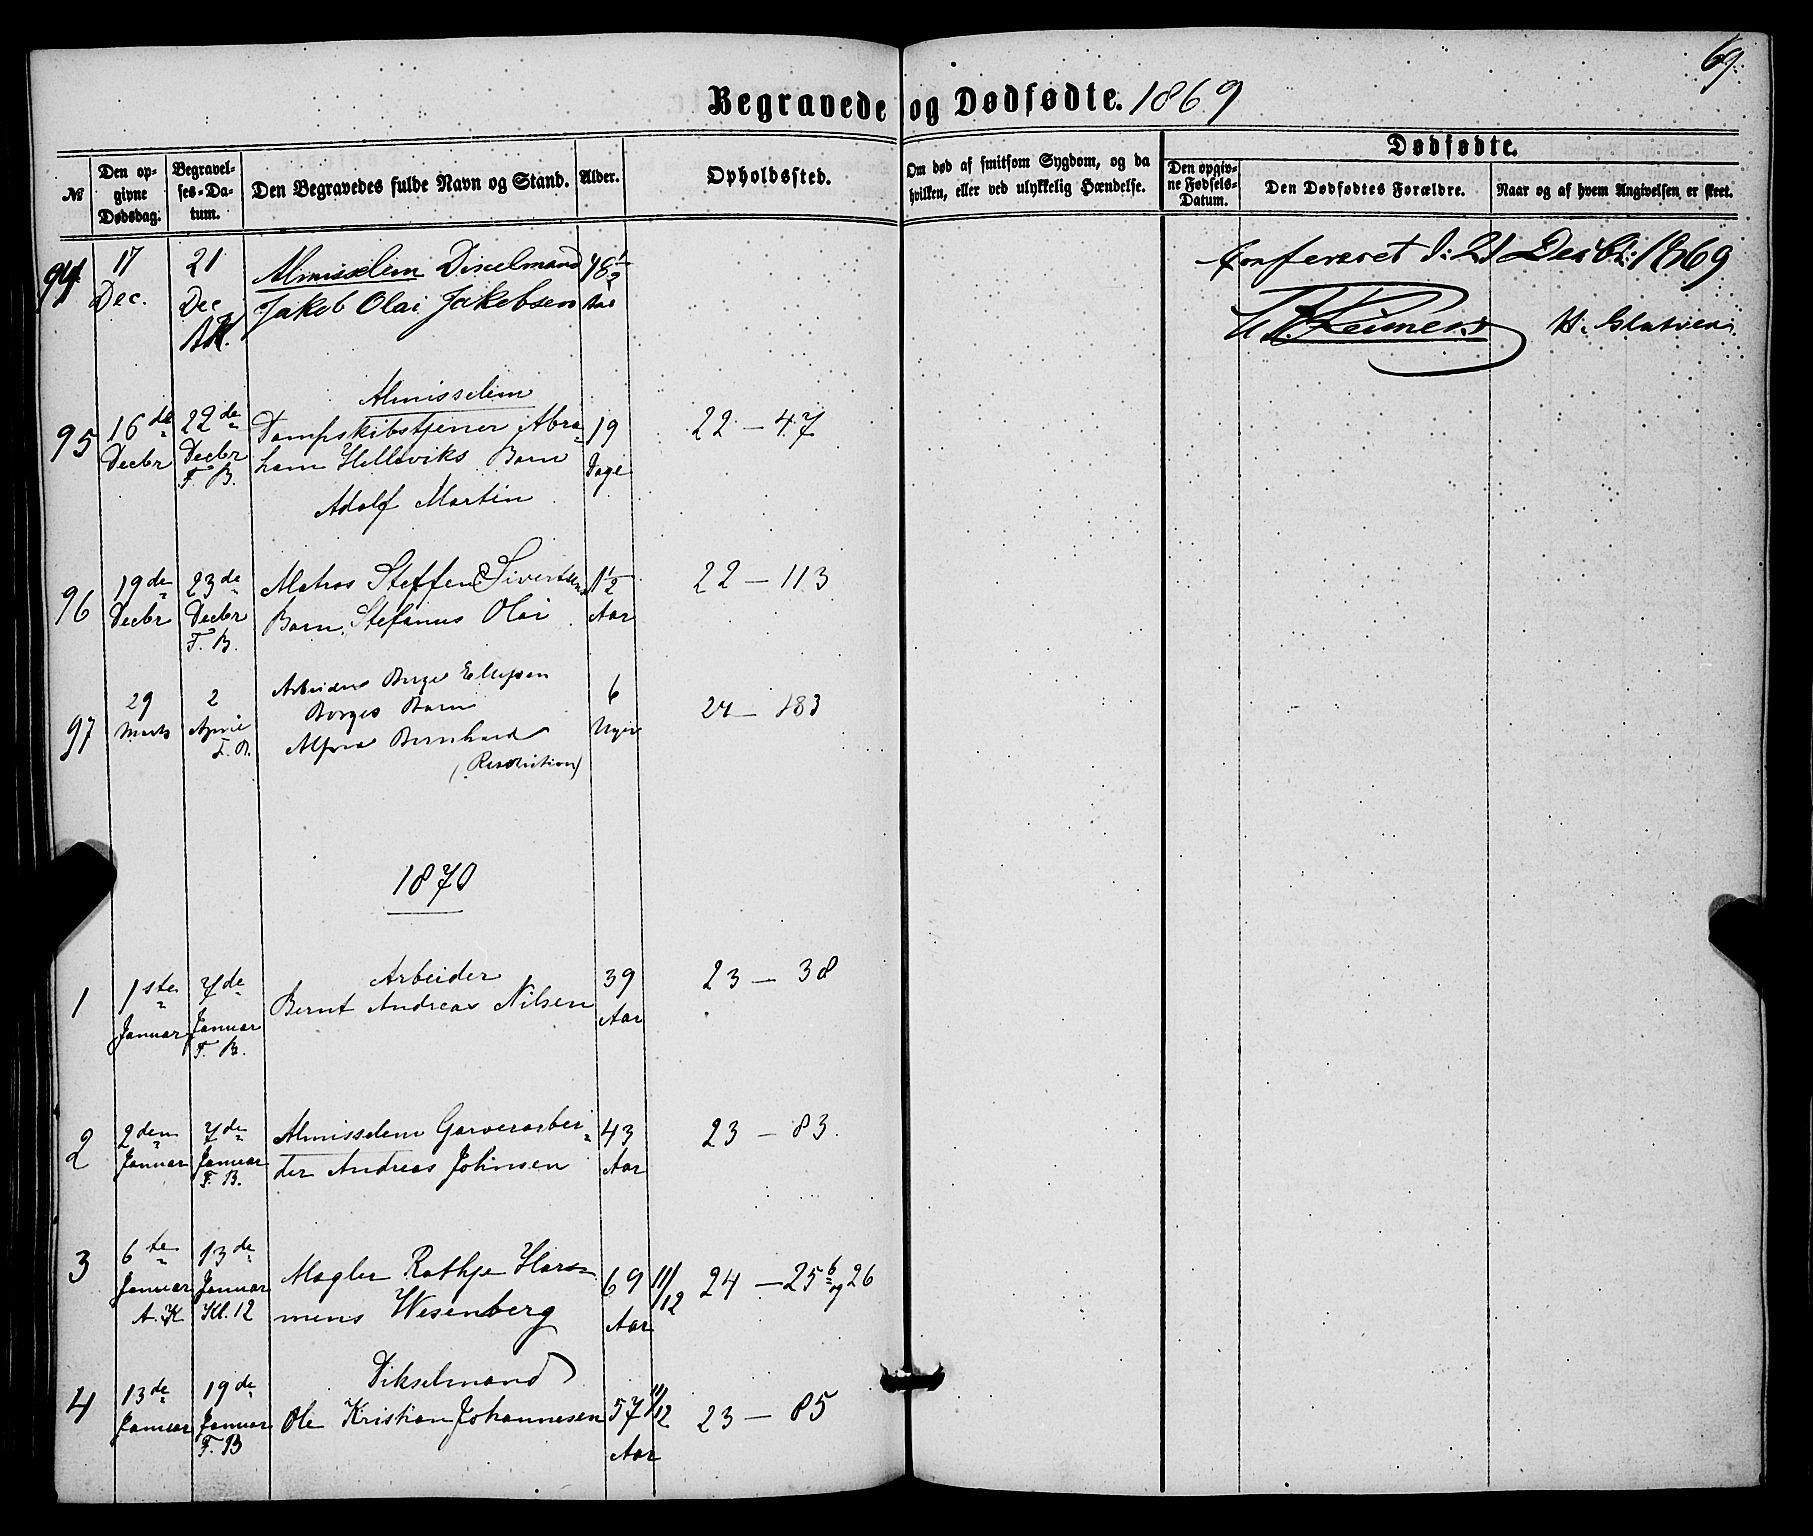 69.
Begravede og Dødfødte. 1869
№
Den op-
givne
Dødsdag.
Begravel-
ses-Da-
tum.
Den Begravedes fulde Navn og Stand.
Alder.
Opholdssted.
Om død af smitsom Sygdom, og da
hvilken, eller ved ulykkelig Hændelse.
Dødfødte.
Den opgiv-
ne Fødsels-
Datum.
Den Dødfødtes Forældre.
Naar og af hvem Angivelsen er skeet.
94
17
Dec.
21
Dec
AK.
Almisselem
Jakob Olai Jakobsen
48 1/2
Aar
Confereret d: 21 Decbr: 1869
95
16de
Decbr
22de
Decbr
F. B.
Almisselem
Dampskibstjener Abra-
ham Helleviks Barn
Adolf Martin
19
Dage
22 – 47
96
19de
Decbr
23de
Decbr
F. B.
Matros Steffen Sivertsens
Barn, Stefanus Olai
1 1/2
Aar
22 – 113
97
29
Marts
2
April
F. B.
Arbeider Børge Ellefsen
Borges Barn
Bernhard
6
Uger
24 – 183
1870
1
1ste
Januar
7de
Januar
F. B.
Arbeider
Bernt Andreas Nilsen
39
Aar
23 – 38
2
2den
Januar
7de
Januar
F. B.
Almisselem Garverarbei-
der Andreas Johnsen
43
Aar
23 – 83.
3
6te
Januar
A. K
13de
Januar
Kl. 12
Mægler Rathje Har-
mens Wesenberg
69 11/12
Aar
24 – 25 b og 26
4
13de
Januar
19de
Januar
F. B
Dikselmand
Ole Kristian Johannesen
57 11/12
Aar
23 – 85